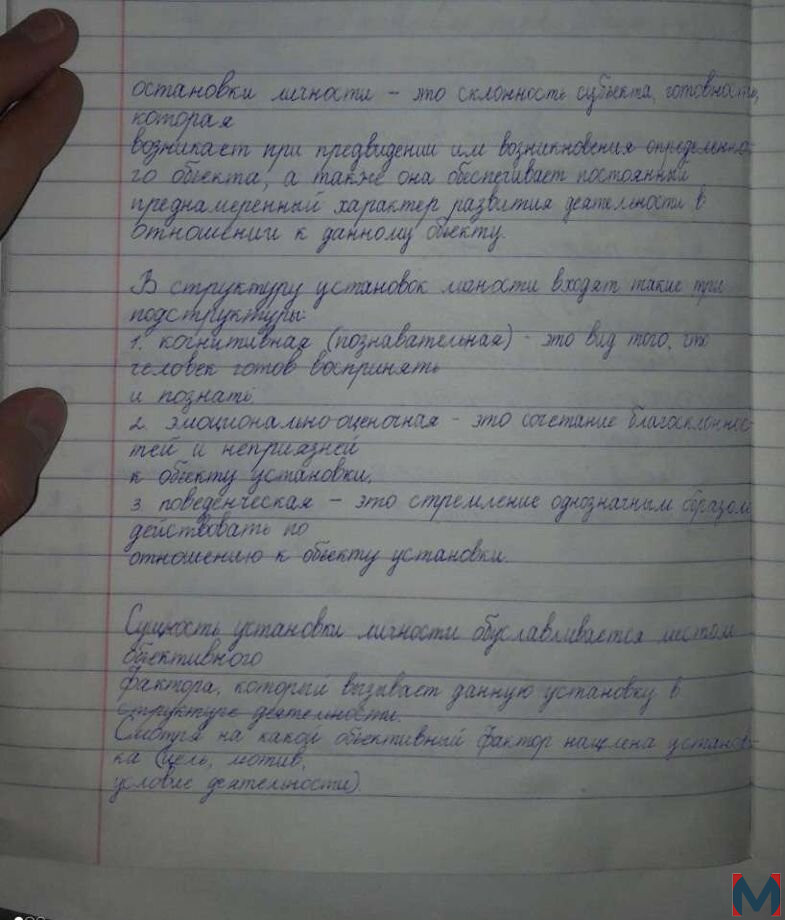 остановки личности - это склонность субъекта, готовность,
которая
возникает при предвидении им возникновения определенно-
го объекта, а также она обеспечивает постоянный
преднамеренный характер развития деятельности в
отношении к данному объекту.
В структуру установок личности входят такие три
подструктуры:
1. когнитивная (познавательная) - это вид того, что
человек готов воспринять
и познать.
2. эмоционально-оценочная - это сочетание благосклоннос-
тей и неприязней
к объекту установки.
3. поведенческая - это стремление однозначным образом
действовать по
отношению к объекту установки.
Сущность установки личности обуславливается местом
объективного
фактора, который вызывает данную установку в
структуре деятельности.
Смотря на какой объективный фактор нацелена установ-
ка (цель, мотив,
условие деятельности)
M